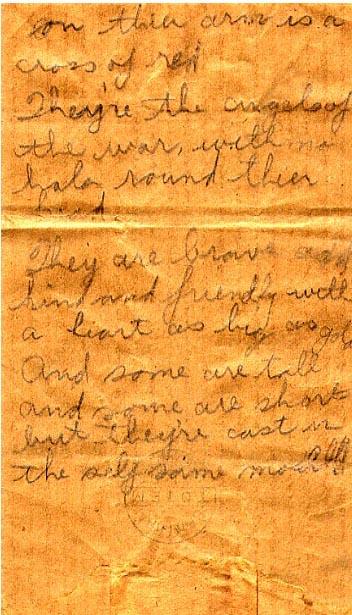 on thier arm is a
cross of red
They're the angels of
the war, with no
halo round thier
head
They are brave and
kind and friendly with
a heart as big as gold
And some are tall
and some are short
but they're cast in
the self same